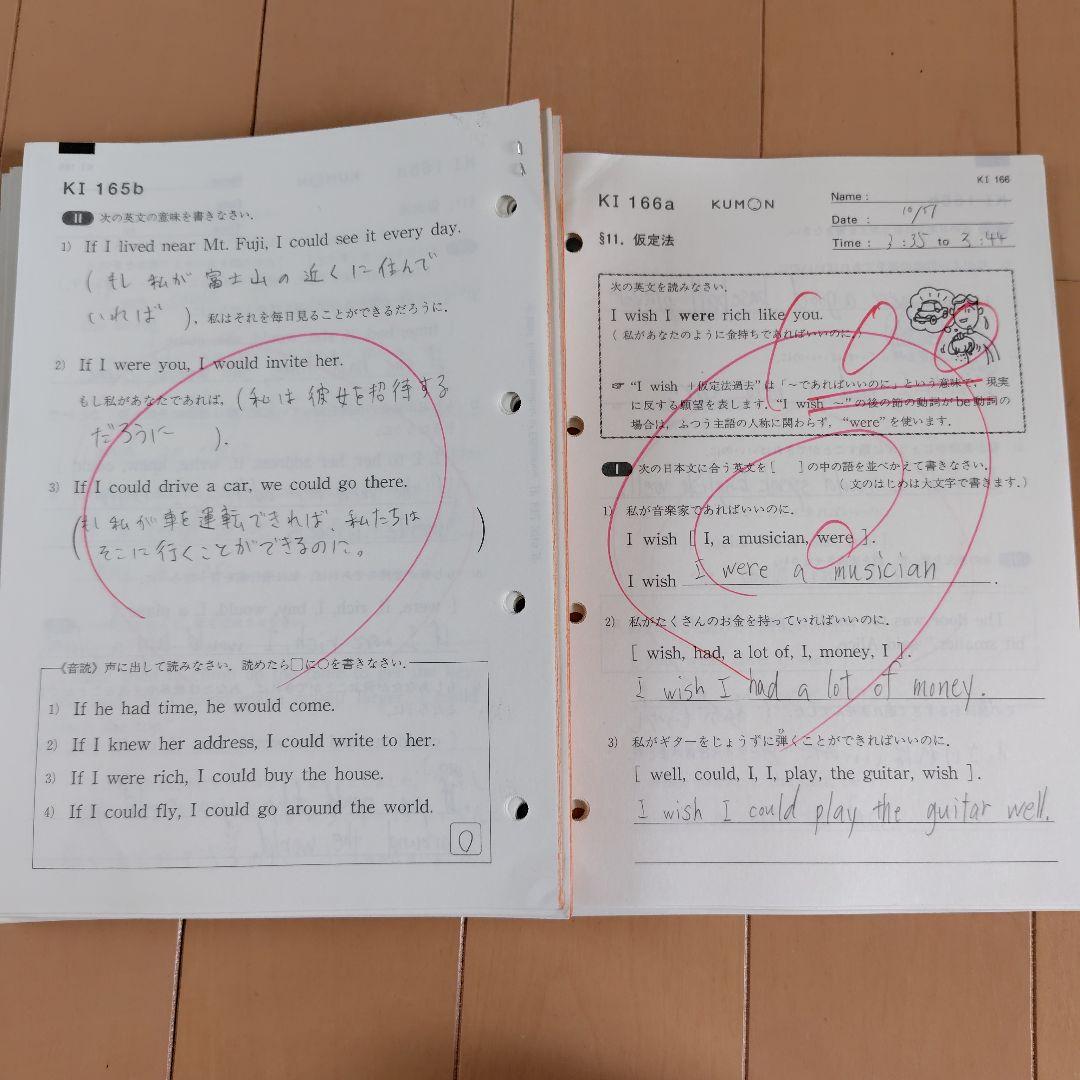 KI 165b
II 次の英文の意味を書きなさい.
1) If I lived near Mt. Fuji, I could see it every day.
(もし私が富士山の近くに住んで
いれば ), 私はそれを毎日見ることができるだろうに.
2) If I were you, I would invite her.
もし私があなたであれば, (私は彼女を招待する
だろうに ).
3) If I could drive a car, we could go there.
(もし私が車を運転できれば、私たちは
そこに行くことができるのに。 )
《音読》声に出して読みなさい. 読めたら□に○を書きなさい.
1) If he had time, he would come.
2) If I knew her address, I could write to her.
3) If I were rich, I could buy the house.
4) If I could fly, I could go around the world.
KI 166
KI 166a KUMON
Name :
Date : 10/17
Time : 3:35 to 3:44
§11. 仮定法
次の英文を読みなさい.
I wish I were rich like you.
(私があなたのように金持ちであればいいのに.)
☞ “I wish +仮定法過去”は「~であればいいのに」という意味で, 現実
に反する願望を表します. “I wish ~”の後の節の動詞がbe動詞の
場合は, ふつう主語の人称に関わらず, “were”を使います.
100
I 次の日本文に合う英文を[ ]の中の語を並べかえて書きなさい.
(文のはじめは大文字で書きます.)
1) 私が音楽家であればいいのに.
I wish [ I, a musician, were ].
I wish I were a musician.
2) 私がたくさんのお金を持っていればいいのに.
[ wish, had, a lot of, I, money, I ].
I wish I had a lot of money.
3) 私がギターをじょうずに弾くことができればいいのに.
[ well, could, I, I, play, the guitar, wish ].
I wish I could play the guitar well.